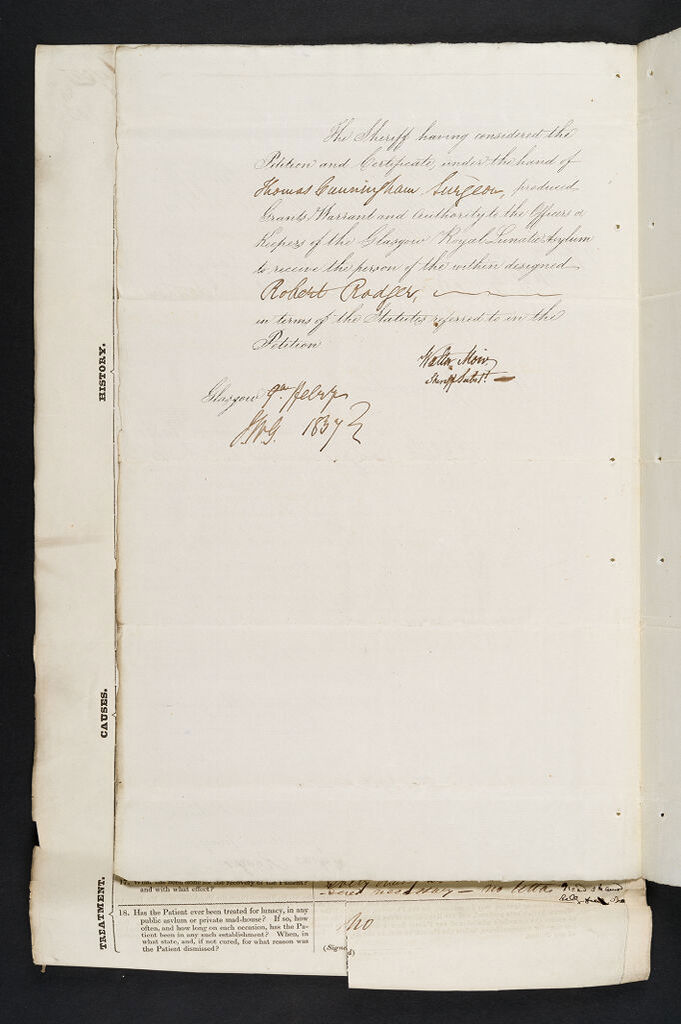 The Sheriff having considered the
Petition and Certificate, under the hand of
Thomas Cunningham Surgeon, produced
Grants Warrant and Authority to the Officers or
Keepers of the Glasgow Royal Lunatic Asylum
to receive the person of the within designed
Robert Rodger,
in terms of the Statutes referred to in the
Petition
Walter Moir
Sheriff Subst.
Glasgow 9th Feby
1837
HISTORY.
CAUSES.
TREATMENT.
and with what effect?
18. Has the Patient ever been treated for lunacy, in any
public asylum or private mad-house? If so, how
often, and how long on each occasion, has the Pa-
tient been in any such establishment? When, in
what state, and, if not cured, for what reason was
the Patient dismissed?
No
(Signed)